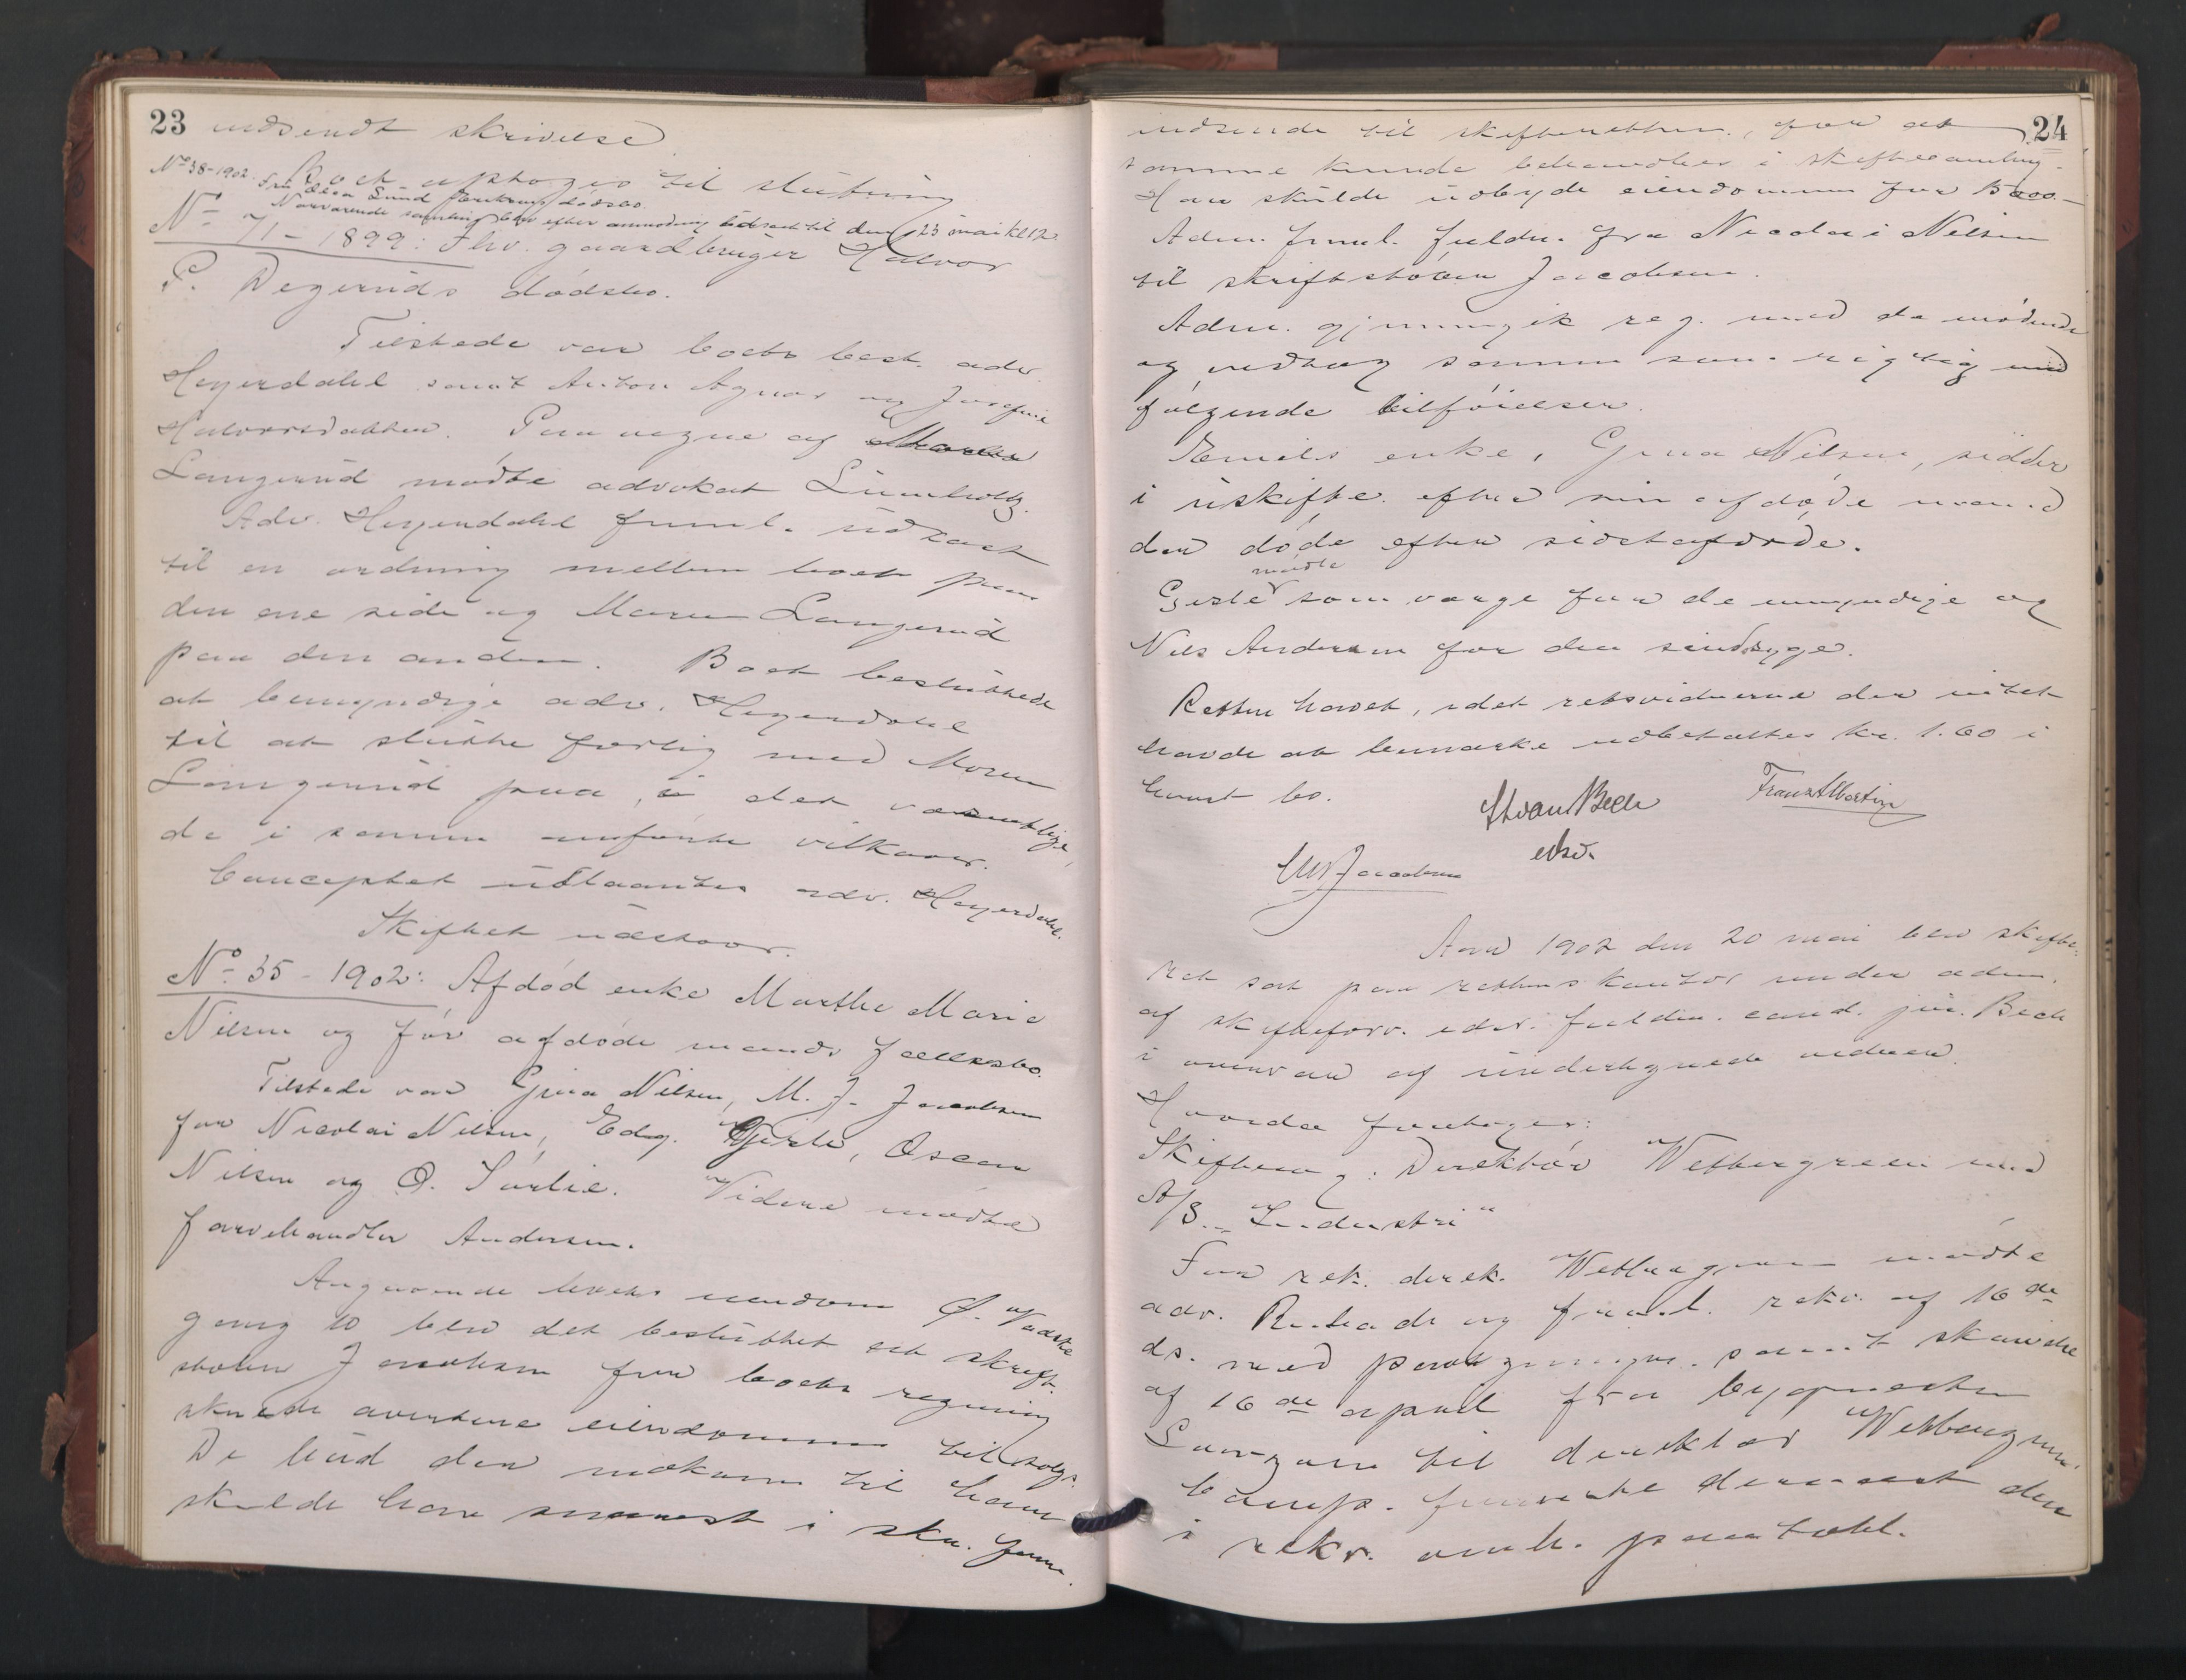 23
indsendt skrivelse
Boet optoges til slutning
No 38-1902. Fru Olea Lund dødsbo.
Nærværende samling blev efter anmodning udsat til den 23 mai kl 12.
No 71 - 1899: Fhv. gaardbruger Halvor
P. Degeruds dødsbo.
Tilstede var boets best. adv.
Heyerdahl samt Anton Agnor og Josefine
Halvorsdatter. Paa vegne af Maren
Langerud mødte advokat Lumholtz.
Adv. Heyerdahl freml. udkast
til en ordning mellem boet paa
den ene side og Maren Langerud
paa den anden. Boet besluttede
at bemyndige adv. Heyerdahl
til at slutte forlig med Maren
Langerud paa, i det væsentlige,
de i samme anførte vilkaar.
Conceptet udlaantes adv. Heyerdahl.
Skiftet udstaar.
No 35 - 1902: Afdød enke Marthe Marie
Nilsen og før afdøde mands fællesbo.
Tilstede var Gina Nilsen, M. J. Jacobsen
for Nicolai Nilsen, Edg. Gjerle, Oscar
Nilsen og O. Sørlie. Videre mødte
farvehandler Andersen.
Angaaende boets eiendom Ø. Vadske
gang 10 blev det besluttet at skrift-
støber Jacobsen for boets regning
skulde avertere eiendommen tilsolgs.
De bud der indkom til ham
skulde han snarest i skr. form.
24
indsende til skifteretten, for at
samme kunde behandles i skiftesamling.
Han skulde udbyde eiendommen for
Adm. freml. fuldm. fra Nicolai Nilsen
til skriftstøber Jacobsen.
Adm. gjennemgik reg. med de mødende
og vedtog samme som rigtig med
følgende tilføielser.
Emils enke, Gina Nilsen, sidder
i uskifte efter sin afdøde mand
der døde efter sidstafdøde.
Gjerle mødte som værge for de umyndige og
Nils Andersen for den sindsyge.
Retten hævet, idet retsvidnerne der intet
havde at bemærke udbetaltes kr. 1.60 i
hvert bo.
Bech
Franz Albertin
edsv.
Jacobsen
Aar 1902 den 20 mai blev skifte-
ret sat paa rettens kontor under adm.
af skifteforv. edsv. fuldm. cand. jur. Bech
i overvær af undertegnede vidner.
Hvorda foretoges:
Skifterg: Direktør Wettergreen med
A/S. "Industri"
For rek. direk. Wettergreen mødte
adv. Rustad og freml. rekv. af 16de
ds. med paategninger samt skrivelse
af 16de april fra bygmester
til direktør Wettergreen.
Comp. fremsatte dernæst den
i rekv. omh. paatale.